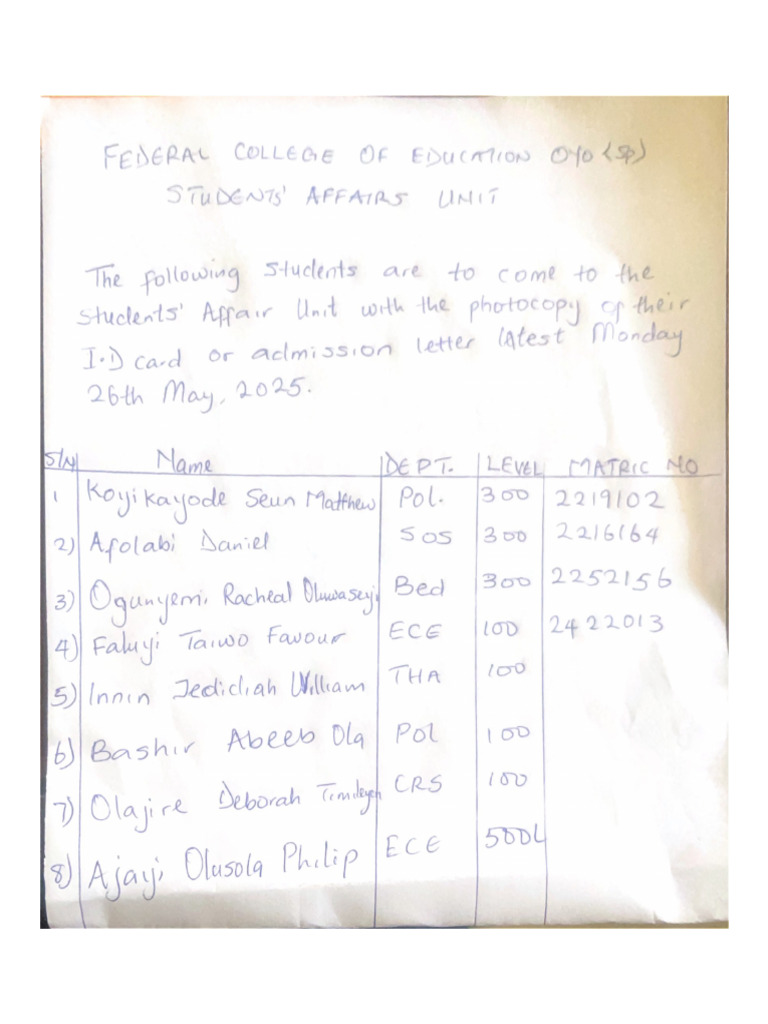 FEDERAL COLLEGE OF EDUCATION OYO (SP)
STUDENTS' AFFAIRS UNIT
The following students are to come to the
Students' Affair Unit with the photocopy of their
I.D card or admission letter latest Monday
26th May, 2025.
S/N Name DEPT. LEVEL MATRIC NO
1 Koyikayode Seun Matthew Pol. 300 2219102
2) Afolabi Daniel SOS 300 2216164
3) Ogunyemi Racheal Oluwaseyi Bed 300 2252156
4) Faluyi Taiwo Favour ECE 100 2422013
5) Innin Jedidiah William THA 100
6) Bashir Abeeb Ola Pol 100
7) Olajire Deborah Timileyin CRS 100
8) Ajayi Olusola Philip ECE 500L